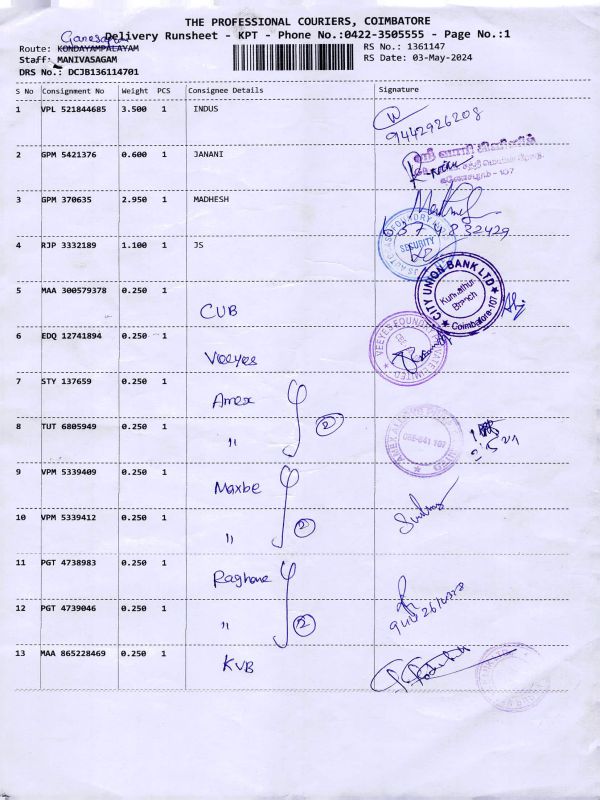 THE PROFESSIONAL COURIERS, COIMBATORE
Delivery Runsheet - KPT - Phone No.:0422-3505555 - Page No.:1
Route: KONDAYAMPALAYAM
RS No.: 1361147
Staff: MANIVASAGAM
RS Date: 03-May-2024
DRS No.: DCJB136114701
S No Consignment No Weight PCS Consignee Details Signature
1 VPL 521844685 3.500 1 INDUS
9442926208
2 GPM 5421376 0.600 1 JANANI
3 GPM 370635 2.950 1 MADHESH
6374832429
4 RJP 3332189 1.100 1 JS
SECURITY
5 MAA 300579378 0.250 1 CUB
CITY UNION BANK LTD
Kurumbapalayam Branch
Coimbatore-107
6 EDQ 12741894 0.250 1 Veeyes
7 STY 137659 0.250 1 Amex
8 TUT 6805949 0.250 1 " 2
9 VPM 5339409 0.250 1 Maxbe
10 VPM 5339412 0.250 1 " 2
11 PGT 4738983 0.250 1 Raghave
12 PGT 4739046 0.250 1 " 2
13 MAA 865228469 0.250 1 KVB